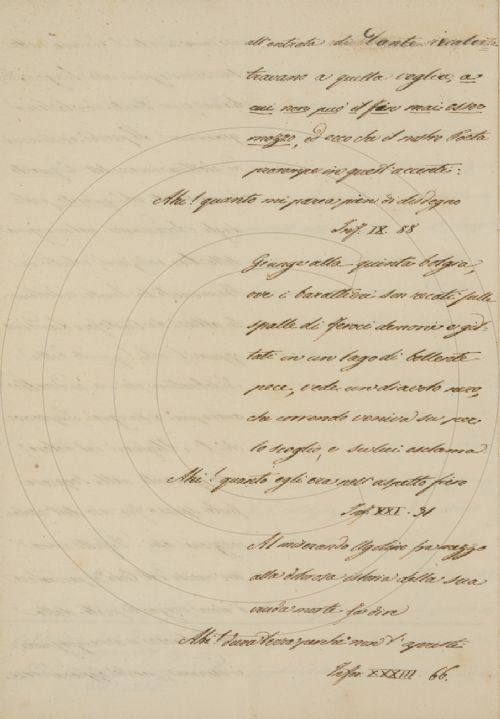 all'entrata di Dante recalci
travano a quella voglia, a
cui non può il fin mai esser
mozzo, ed ecco che il nostro Poeta
prorompe in quest'accenti:
Ahi! quanto mi parea pien di disdegno
Inf. IX. 88
Giunge alla quinta bolgia,
ove i barattieri son recati sulle
spalle di feroci demonii e git-
tati in un lago di bollente
pece, vede un diavolo nero,
che correndo veniva su per
lo scoglio, e su lui esclama
Ahi! quanto egli era nell'aspetto fiero
Inf. XXI. 31
Al miserando Ugolino fra mezzo
alla dolorosa istoria della sua
cruda morte fa dire
Ahi! dura terra, perché non t'apristi
Infer. XXXIII. 66.